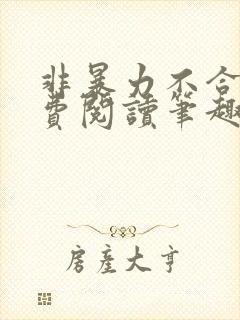 非暴力不合
費閱讀筆趣
房產大亨